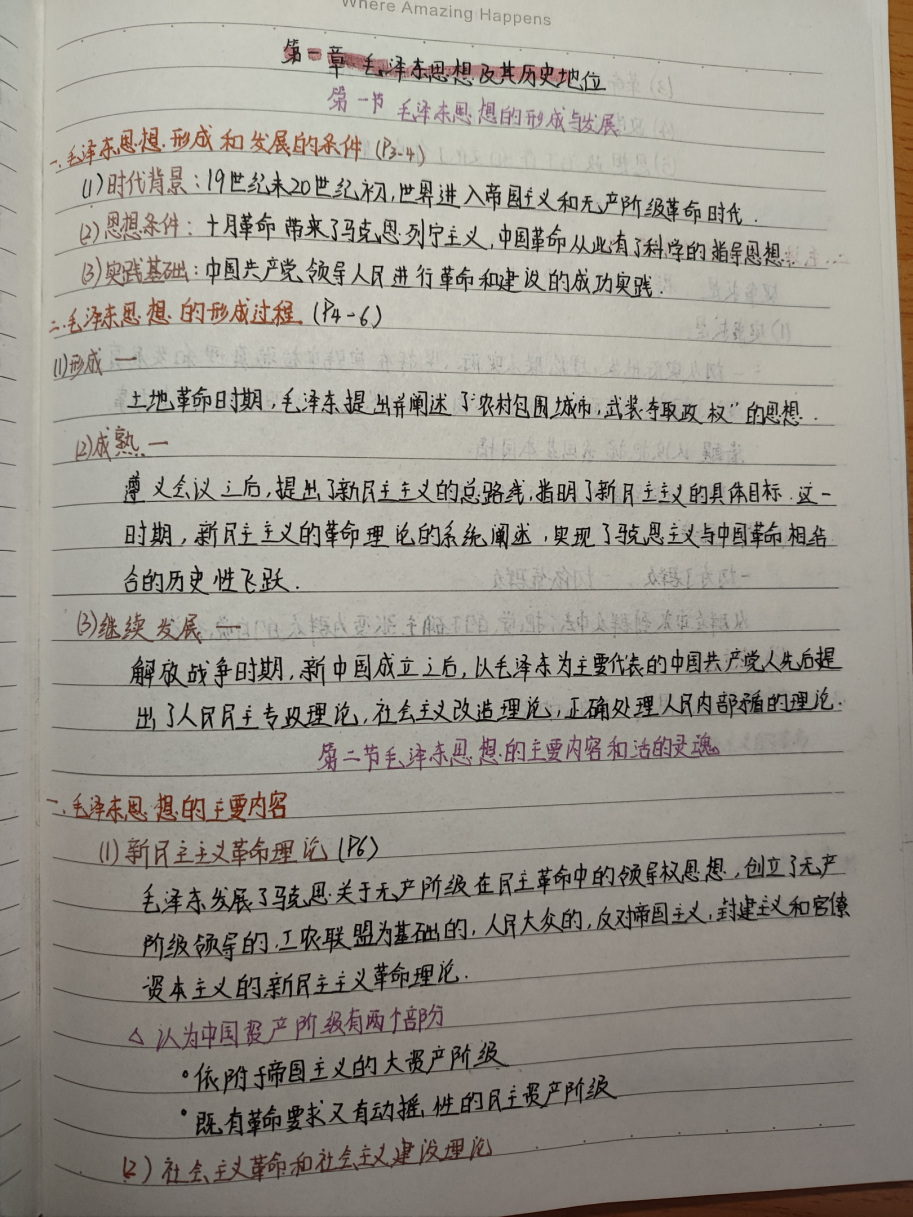 Where Amazing Happens
第一章 毛泽东思想及其历史地位
第一节 毛泽东思想的形成与发展
一.毛泽东思想形成和发展的条件 (P3-4)
(1)时代背景：19世纪末20世纪初，世界进入帝国主义和无产阶级革命时代.
(2)思想条件：十月革命带来了马克思列宁主义，中国革命从此有了科学的指导思想.
(3)实践基础：中国共产党领导人民进行革命和建设的成功实践.
二.毛泽东思想的形成过程 (P4-6)
(1)形成 —
土地革命时期，毛泽东提出并阐述了“农村包围城市，武装夺取政权”的思想.
(2)成熟 —
遵义会议之后，提出了新民主主义的总路线，指明了新民主主义的具体目标.这一
时期，新民主主义的革命理论的系统阐述，实现了马克思主义与中国革命相结
合的历史性飞跃.
(3)继续发展 —
解放战争时期，新中国成立之后，以毛泽东为主要代表的中国共产党人先后提
出了人民民主专政理论，社会主义改造理论，正确处理人民内部矛盾的理论.
第二节毛泽东思想的主要内容和活的灵魂
一.毛泽东思想的主要内容
(1)新民主主义革命理论 (P6)
毛泽东发展了马克思关于无产阶级在民主革命中的领导权思想，创立了无产
阶级领导的，工农联盟为基础的，人民大众的，反对帝国主义，封建主义和官僚
资本主义的新民主主义革命理论.
△ 认为中国资产阶级有两个部分
•依附于帝国主义的大资产阶级
•既有革命要求又有动摇性的民主资产阶级
(2)社会主义革命和社会主义建设理论